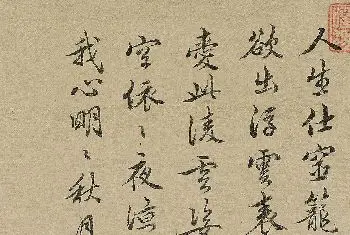 人生仕宦籠
欲出浮雲表
愛此凌雲姿
空依〻夜涼
我心明〻秋月